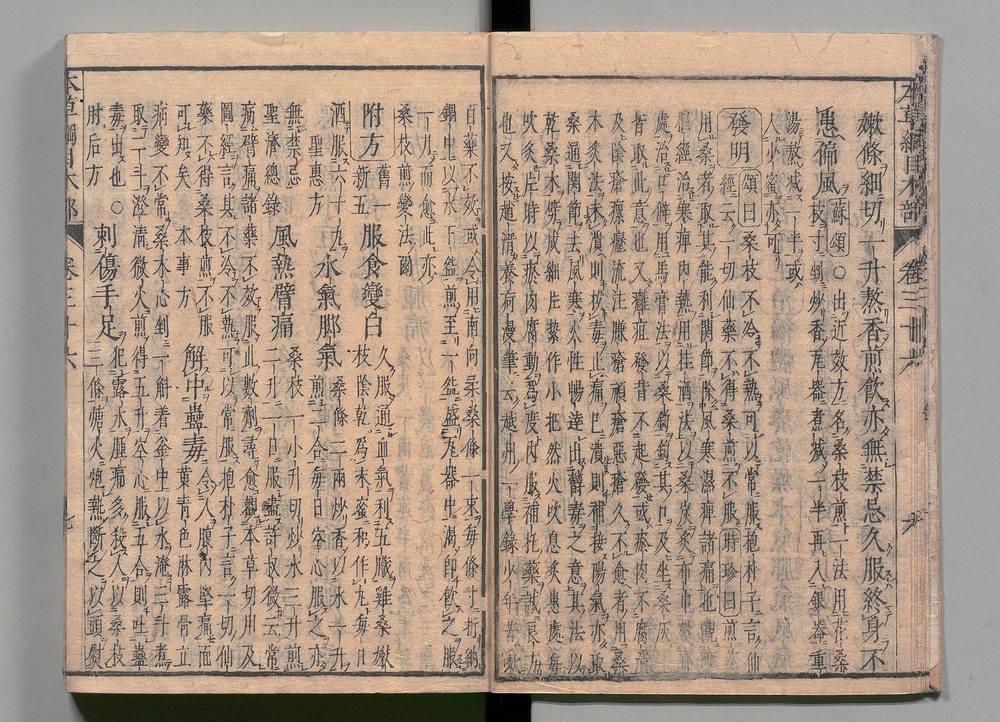 嫩條細切一升熬香煎飲亦無禁忌久服終身不
患偏風蘇頌○出近效方名桑枝煎一法用花桑
枝寸剉炒香瓦器煮減一半再入銀器重
湯熬減一半或
入少蜜亦可
發明頌曰桑枝不冷不熱可以常服抱朴子言仙
經云一切仙藥不得桑煎不服時珍曰煎藥
用桑者取其能利關節除風寒濕痺諸痛也觀靈
樞經治寒痺內熱用桂酒法以桑炭炙布巾熨痺
處治口僻用馬膏法以桑鉤鉤其口及坐桑灰上
皆取此意也又癰疽發背不起發或瘀肉不腐潰
及陰瘡瘰癧流注臁瘡頑瘡惡瘡久不愈者用桑
木炙法未潰則拔毒止痛已潰則補接陽氣亦取
桑通關節去風寒火性暢達出鬱毒之意其法以
乾桑木劈成細片紮作小把然火吹息炙患處每
吹炙片時以瘀肉腐動爲度內服補托藥誠良方
也又按趙溍養疴漫筆云越州一學錄少年苦嗽
百藥不效或令用南向柔桑條一束每條寸折納
鍋中以水五盌煎至一盌盛瓦器中渴卽飲之服
一月而愈此亦
桑枝煎變法爾
附方舊一新五服食變白久服通血氣利五臟雞桑嫩
枝陰乾爲末蜜和作丸每日
酒服六十丸
聖惠方水氣脚氣桑條二兩炒香以水一升
煎二合每日空心服之亦
無禁忌
聖濟總錄風熱臂痛桑枝一小升切炒水三升煎
二升一日服盡許叔微云常
病臂痛諸藥不效服此數劑尋愈觀本草切用及
圖經言其不冷不熱可以常服抱朴子言一切仙
藥不得桑枝煎不服
可知矣本事方解中蠱毒令人腹內堅痛面
黃青色淋露骨立
病變不常桑木心剉一斛着釜中以水淹三斗煮
取二斗澄清微火煎得五升空心服五合則吐蠱
毒出也○
肘后方刺傷手足犯露水腫痛多殺人以桑枝
三條煻火炮熱斷之以頭熨
本草綱目木部
卷三十六